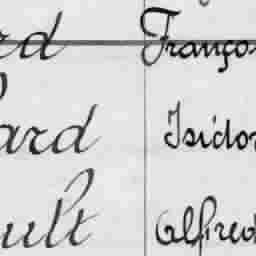 rd Franço
ard Isidor
ult Alfred